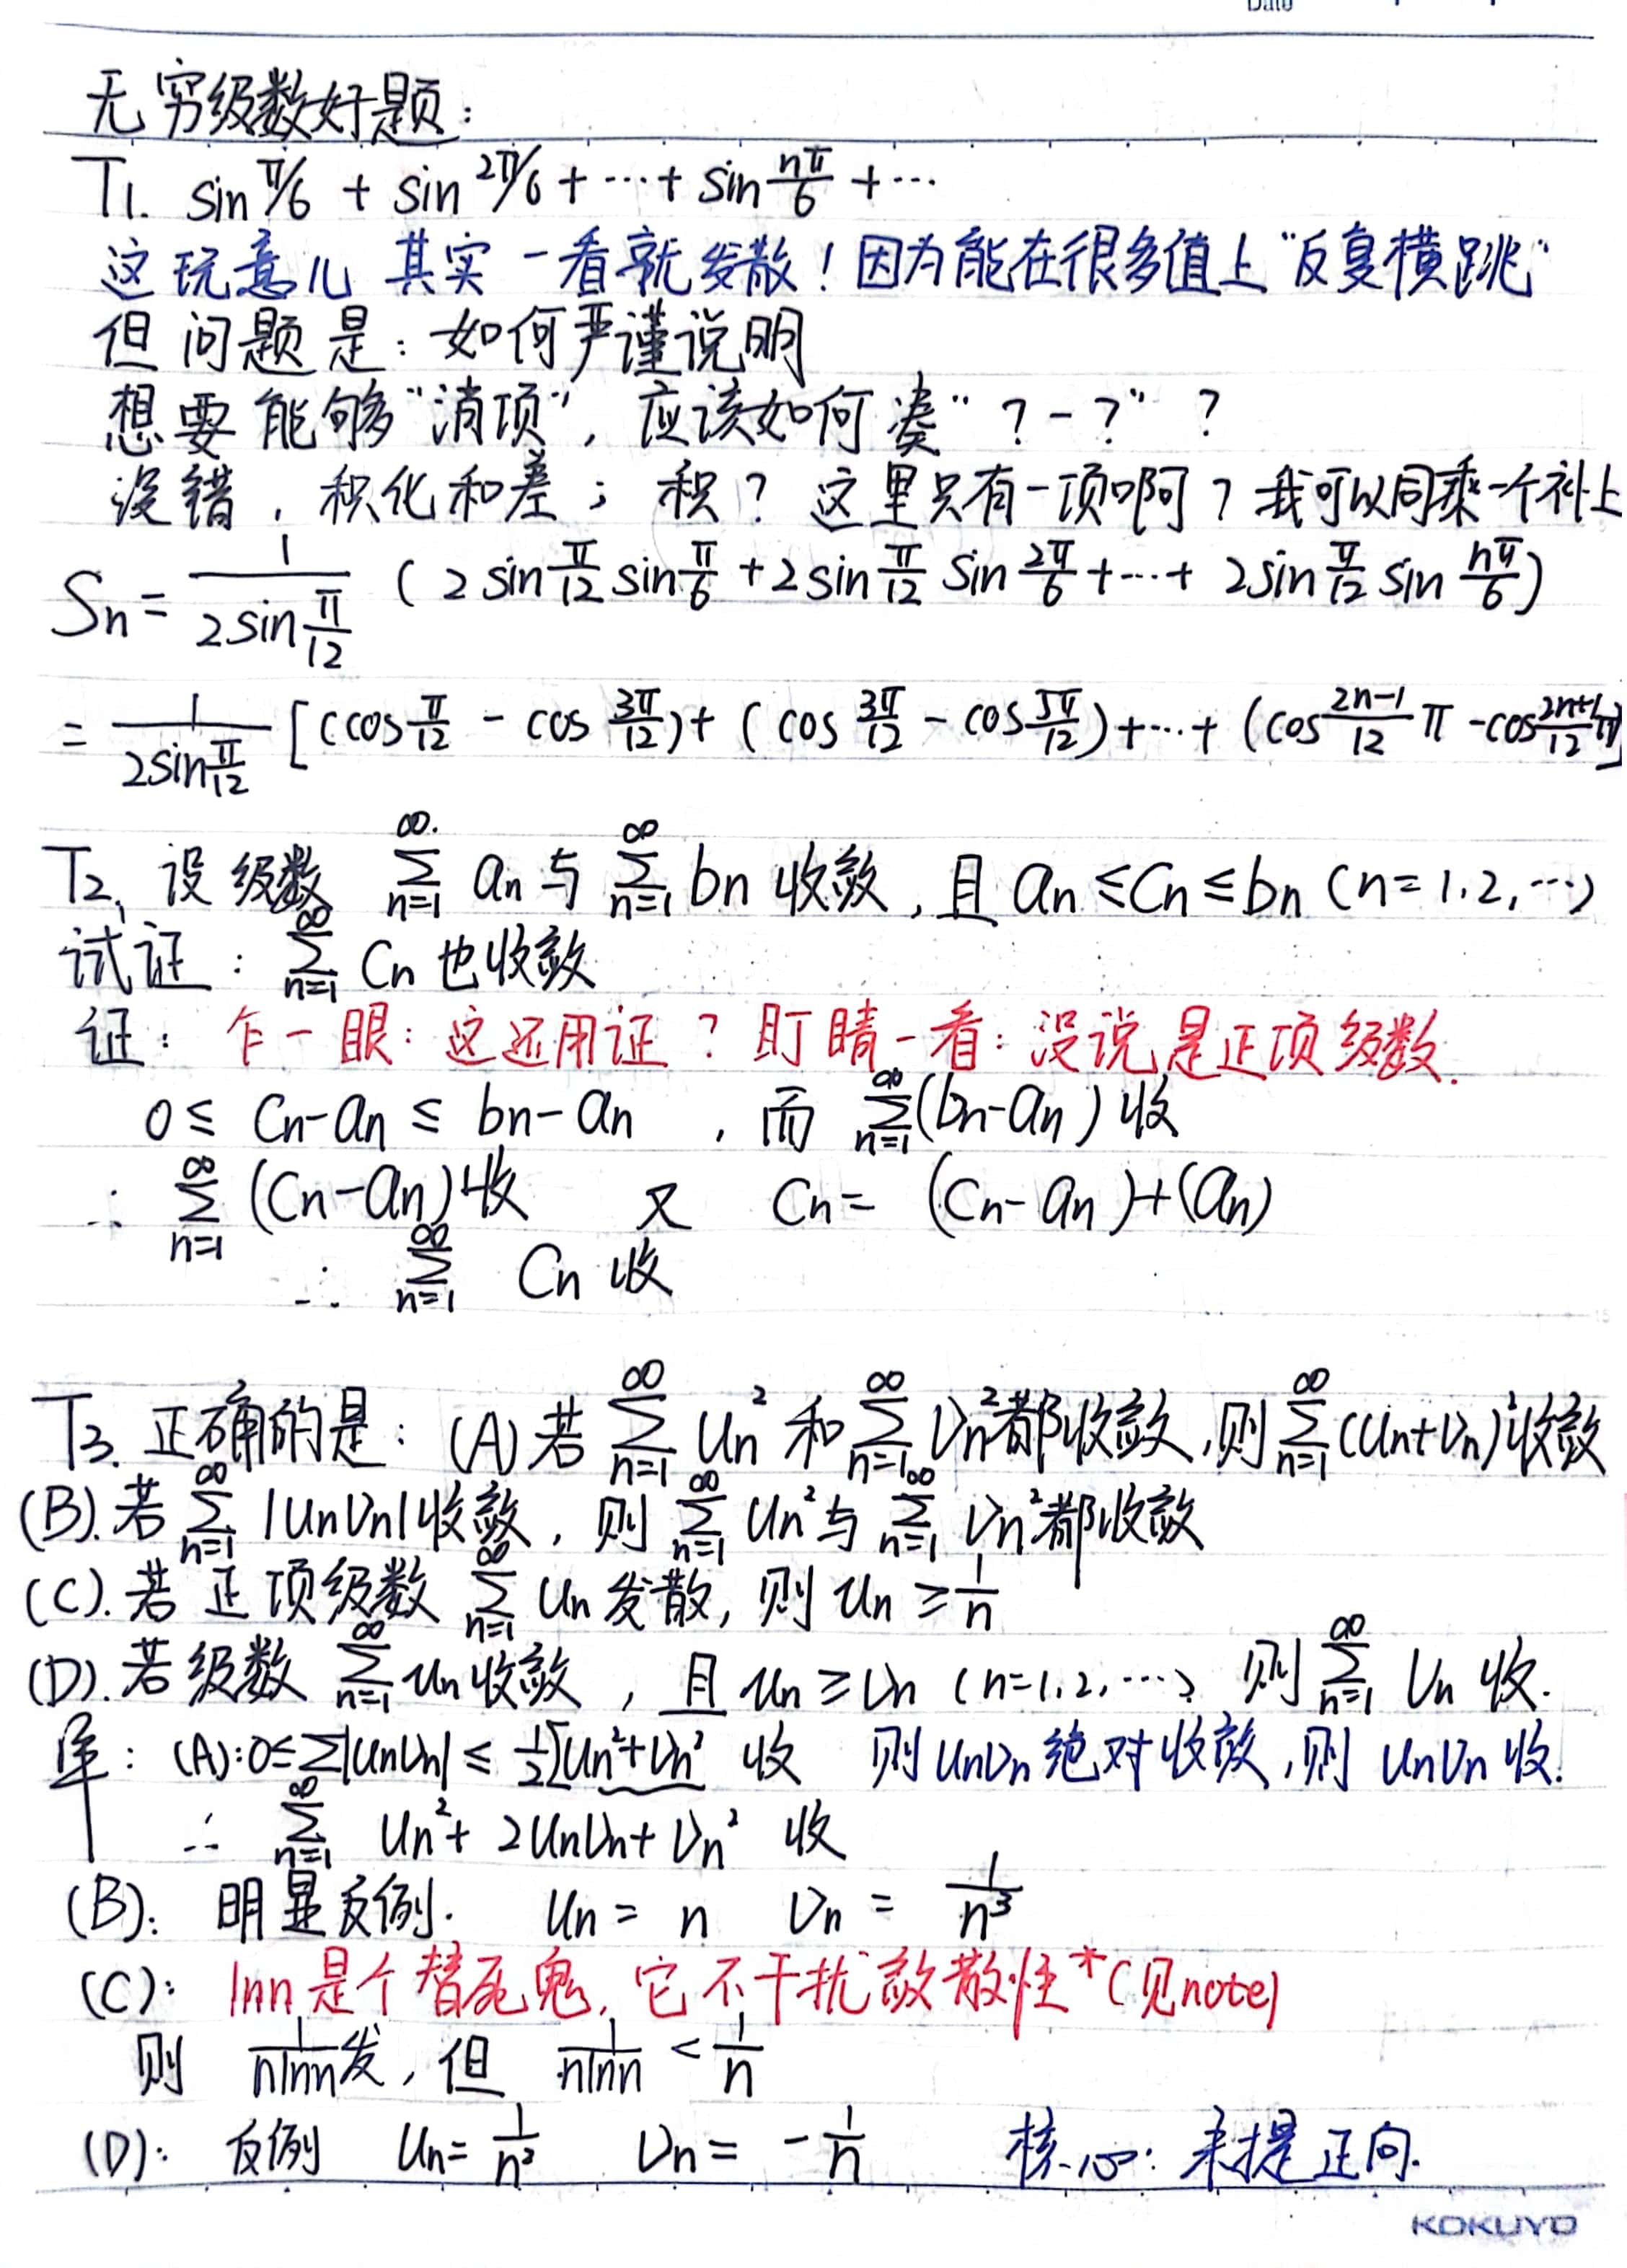 Date
无穷级数好题:
T1. sin π/6 + sin 2π/6 + ··· + sin nπ/6 + ···
这玩意儿 其实一看就发散！因为能在很多值上“反复横跳”
但问题是：如何严谨说明
想要能够“消项”，应该如何凑“？-？”？
没错，积化和差；积？这里只有一项啊？我可以同乘一个补上
Sn = 1/(2sin π/12) (2 sin π/12 sin π/6 + 2 sin π/12 sin 2π/6 + ··· + 2 sin π/12 sin nπ/6)
= 1/(2sin π/12) [(cos π/12 - cos 3π/12) + (cos 3π/12 - cos 5π/12) + ··· + (cos (2n-1)/12 π - cos (2n+1)/12 π)]
T2. 设级数 ∑_{n=1}^∞ an 与 ∑_{n=1}^∞ bn 收敛，且 an ≤ Cn ≤ bn (n=1.2,···)
试证：∑_{n=1}^∞ Cn 也收敛
证：乍一眼：这还用证？盯睛一看：没说是正项级数.
0 ≤ Cn - an ≤ bn - an ，而 ∑_{n=1}^∞ (bn - an) 收
∴ ∑_{n=1}^∞ (Cn - an) 收 又 Cn = (Cn - an) + (an)
∴ ∑_{n=1}^∞ Cn 收
T3. 正确的是：(A) 若 ∑_{n=1}^∞ Un² 和 ∑_{n=1}^∞ Vn² 都收敛，则 ∑_{n=1}^∞ (Un+Vn)² 收敛
(B). 若 ∑_{n=1}^∞ |UnVn| 收敛，则 ∑_{n=1}^∞ Un² 与 ∑_{n=1}^∞ Vn² 都收敛
(C). 若正项级数 ∑_{n=1}^∞ Un 发散，则 Un ≥ 1/n
(D). 若级数 ∑_{n=1}^∞ Un 收敛，且 Un ≥ Vn (n=1.2,···) 则 ∑_{n=1}^∞ Vn 收.
(A): 0 ≤ ∑|UnVn| ≤ ½∑Un²+Vn² 收 则 UnVn 绝对收敛，则 UnVn 收.
∴ ∑_{n=1}^∞ Un² + 2UnVn + Vn² 收
(B): 明显反例. Un = n Vn = 1/n³
(C): lnn 是个替死鬼，它不干扰敛散性 *(见note)
则 1/(nlnn) 发，但 1/(nlnn) < 1/n
(D): 反例 Un = 1/n² Vn = -1/n 核心：未提正向.
KOKUYO